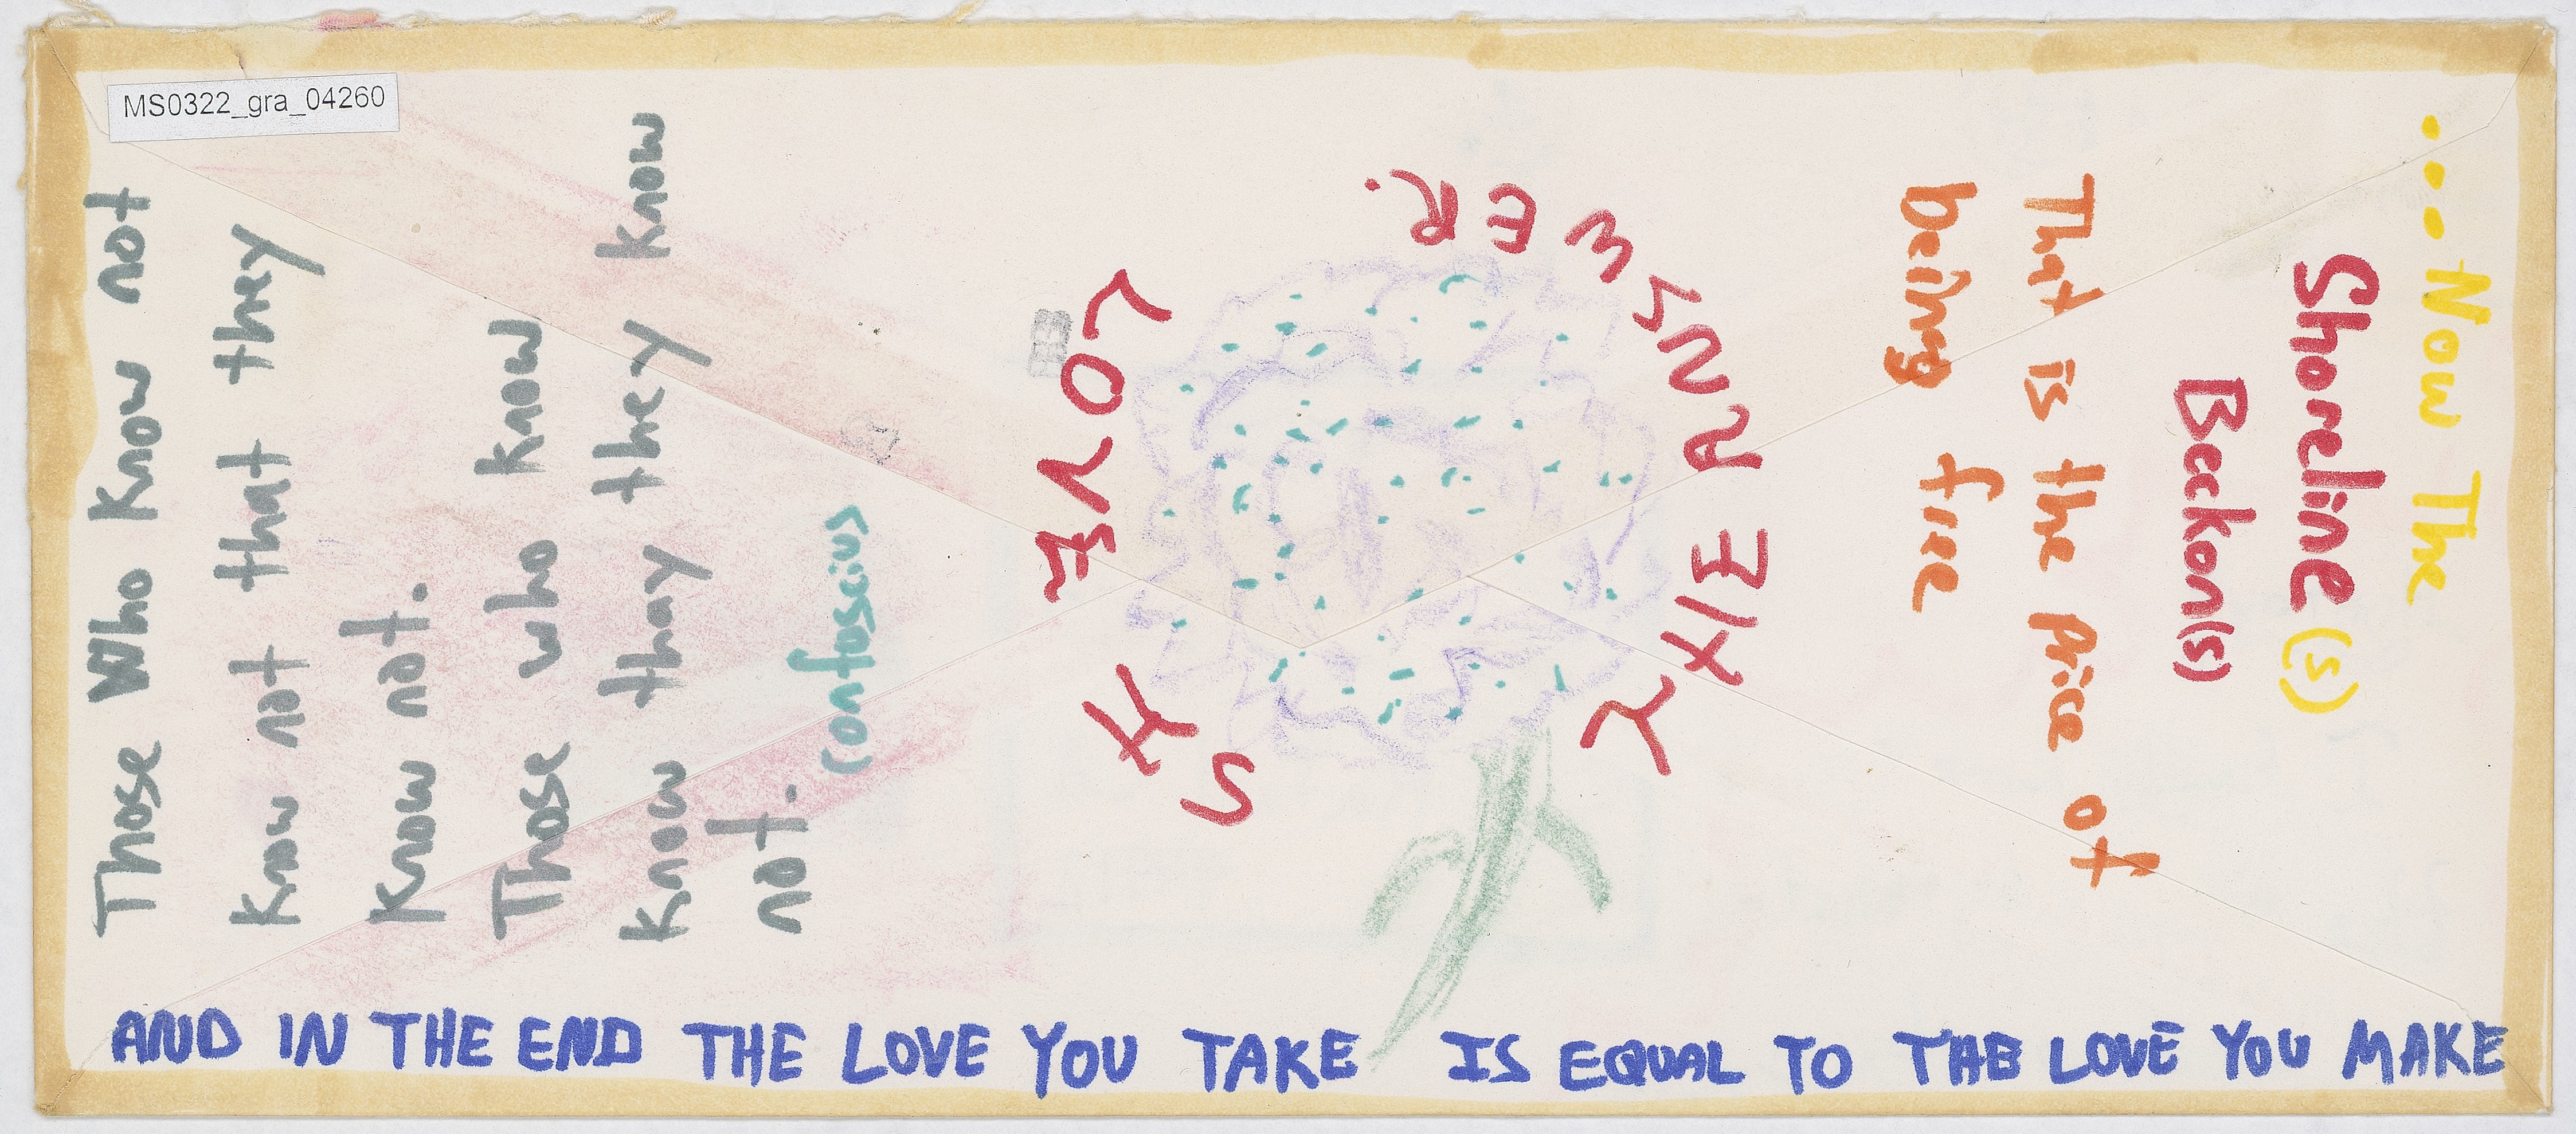 MS0322_gra_04260
Those Who Know not
Know not that they
Know not.
Those who know
Know thay they know
not.
Confuscius
LOVE IS THE ANSWER.
...Now The
Shoreline(s)
Beckon(s)
That is the Price of
being free
AND IN THE END THE LOVE YOU TAKE IS EQUAL TO THE LOVE YOU MAKE